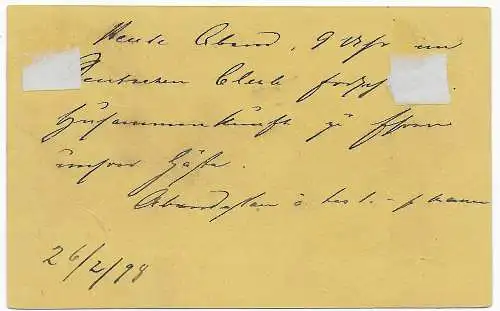 Heute Abend, 9 Uhr im
Deutschen Club
Zusammenkunft zu Ehren
unserer Gäste.
Abendessen
26/2/98